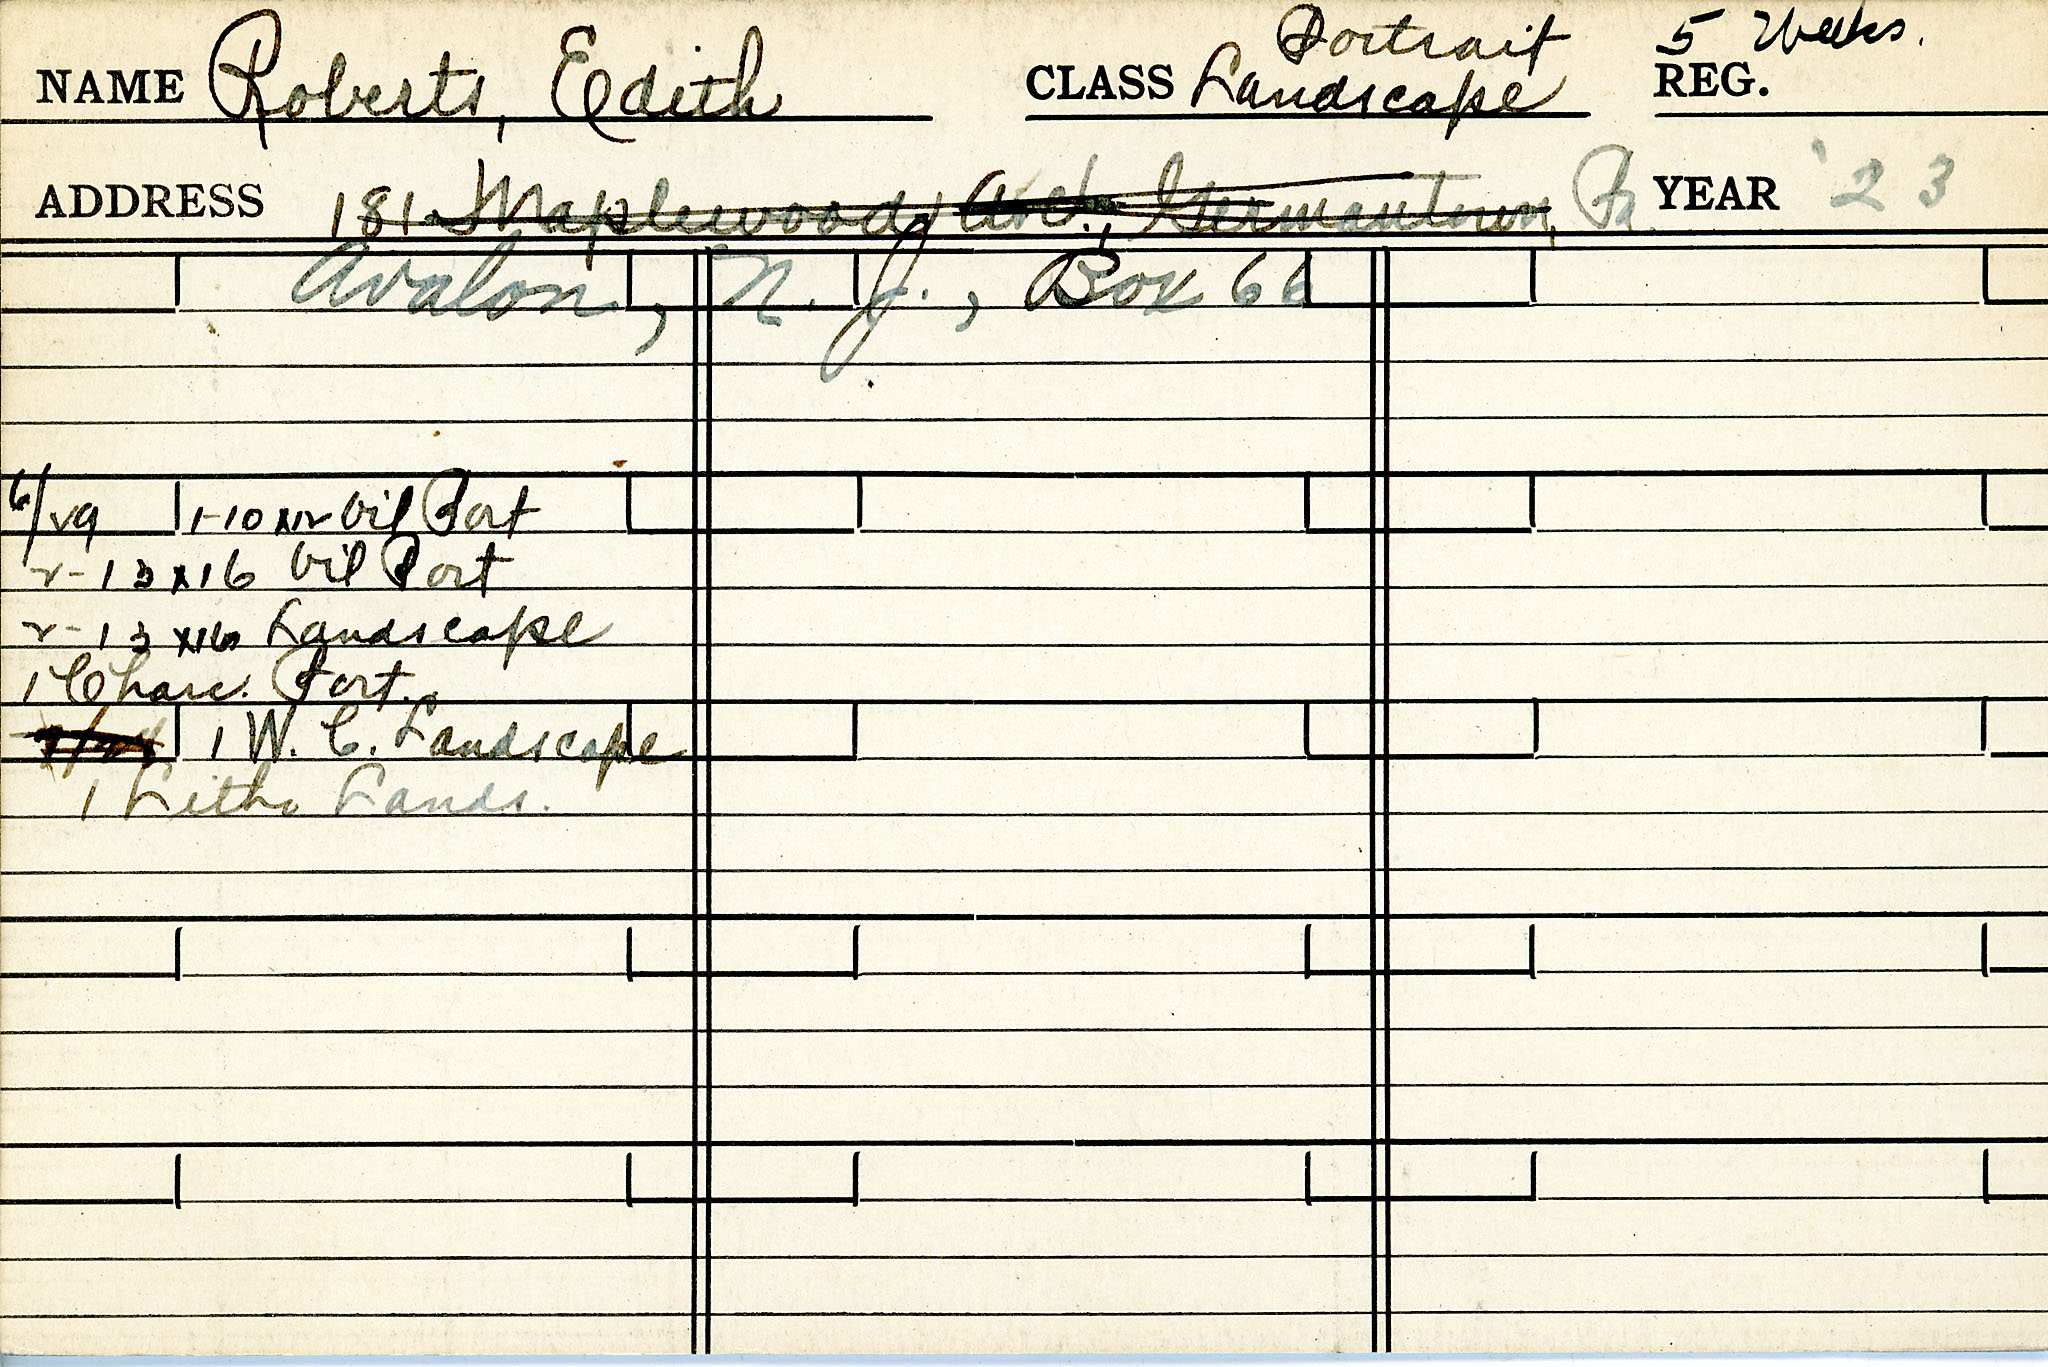 NAME Roberts, Edith CLASS Portrait Landscape 5 Weeks. REG.
ADDRESS 181 Maplewood Ave., Germantown, Pa. YEAR '23
Avalon, N. J., Box 66
6/29 1-10x12 Oil Port
2-13x16 Oil Port
2-13x16 Landscape
1 Charc. Port.
1 W. C. Landscape
1 Litho Lands.